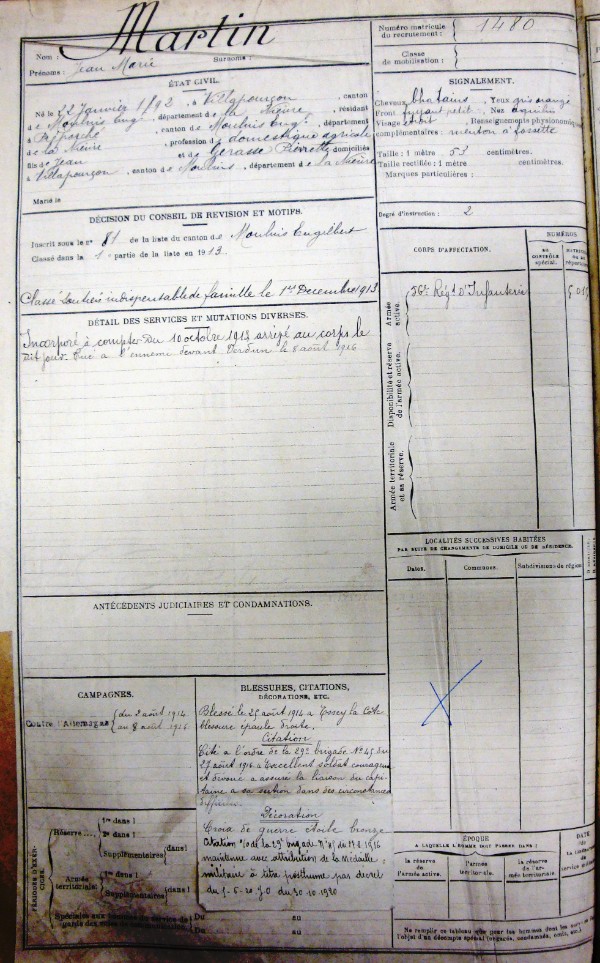 Martin
Nom :
Prénoms : Jean Marie Surnoms :
Numéro matricule du recrutement : 1480
Classe de mobilisation :
ÉTAT CIVIL.
Né le 22 Janvier 1892, à Villapourçon, canton
de Moulins Engt, département de la Nièvre, résidant
à Préporché, canton de Moulins Engt, département
de la Nièvre, profession de domestique agricole
fils de Jean et de Gerasse Pierrette domiciliés
à Villapourçon, canton de Moulins, département de la Nièvre
Marié le
SIGNALEMENT.
Cheveux châtains, Yeux gris orangé
Front fuyant petit, Nez aquilin
Visage étroit, Renseignements physionomiques
complémentaires : menton à fossette
Taille : 1 mètre 53 centimètres.
Taille rectifiée : 1 mètre centimètres.
Marques particulières :
Degré d'instruction : 2
DÉCISION DU CONSEIL DE REVISION ET MOTIFS.
Inscrit sous le n° 81 de la liste du canton de Moulins Engilbert
Classé dans la 1e partie de la liste en 1913.
Classé soutien indispensable de famille le 1er Decembre 1913
DÉTAIL DES SERVICES ET MUTATIONS DIVERSES.
Incorporé à compter du 10 octobre 1913 arrivé au corps le
dit jour. Tué à l'ennemi devant Verdun le 8 août 1916
CORPS D'AFFECTATION.
NUMÉROS
AU CONTRÔLE spécial.
Armée active.
56e Régt d'Infanterie
Disponibilité et réserve de l'armée active.
Armée territoriale et sa réserve.
LOCALITÉS SUCCESSIVES HABITÉES
PAR SUITE DE CHANGEMENTS DE DOMICILE OU DE RÉSIDENCE.
Dates. Communes. Subdivisions de région
ANTÉCÉDENTS JUDICIAIRES ET CONDAMNATIONS.
CAMPAGNES.
Contre l'Allemagne du 2 août 1914
au 8 août 1916
BLESSURES, CITATIONS,
DÉCORATIONS, ETC.
Blessé le 25 août 1914 à
blessure épaule droite.
Citation
Cité à l'ordre de la 29e brigade No 45 du
27 août 1916 Excellent soldat courageux
et dévoué a assuré la liaison du capi-
taine à sa section dans des circonstances
Décoration
Croix de guerre étoile bronze
Citation de la 29e brigade 1916
maintenue avec attribution de la médaille
militaire à titre posthume par décret
du 1-6-20 JO du 30-10-1920
PÉRIODES D'EXERCICES.
Réserve
1re dans l
2e dans l
Supplémentaires dans l
Armée territoriale:
1re dans l
Supplémentaires dans l
Spéciales aux hommes du service de
garde des voies de communication.
Du au
Du au
ÉPOQUE
A LAQUELLE L'HOMME DOIT PASSER DANS :
la réserve de l'armée active.
l'armée territoriale.
la réserve de l'armée territoriale.
DATE
Ne remplir ce tableau que pour les hommes dont les
l'objet d'un décompte spécial (engagés, condamnés, omis, etc.)